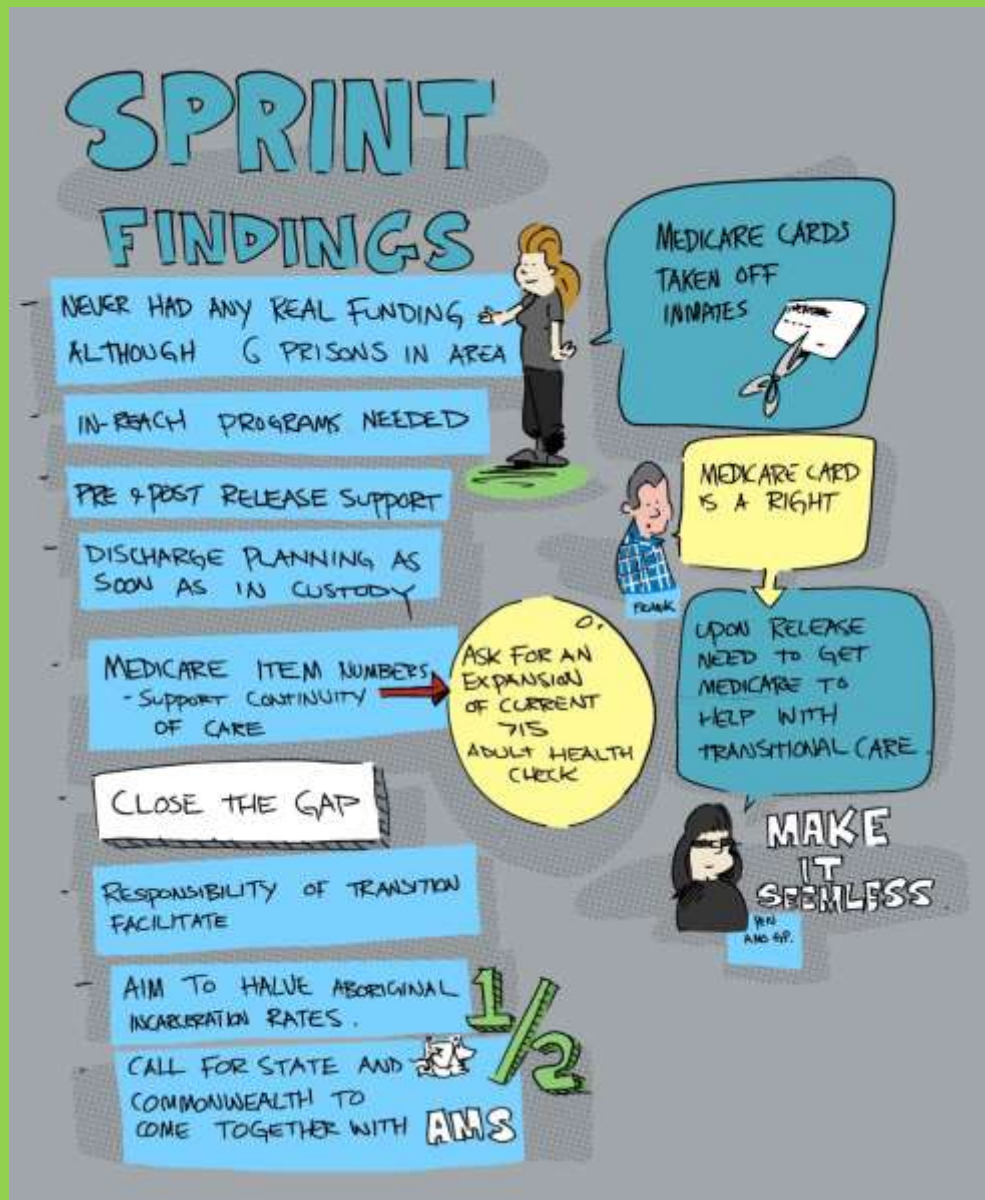 SPRINT
FINDINGS
- NEVER HAD ANY REAL FUNDING
ALTHOUGH 6 PRISONS IN AREA
- IN-REACH PROGRAMS NEEDED
- PRE & POST RELEASE SUPPORT
- DISCHARGE PLANNING AS
SOON AS IN CUSTODY
- MEDICARE ITEM NUMBERS
- SUPPORT CONTINUITY
OF CARE
ASK FOR AN
EXPANSION
OF CURRENT
715
ADULT HEALTH
CHECK
- CLOSE THE GAP
- RESPONSIBILITY OF TRANSITION
FACILITATE
- AIM TO HALVE ABORIGINAL
INCARCERATION RATES.
1/2
- CALL FOR STATE AND
COMMONWEALTH TO
COME TOGETHER WITH AMS
MEDICARE CARDS
TAKEN OFF
INMATES
MEDICARE CARD
IS A RIGHT
FRANK
UPON RELEASE
NEED TO GET
MEDICARE TO
HELP WITH
TRANSITIONAL CARE.
MAKE
IT
SEEMLESS
GP.